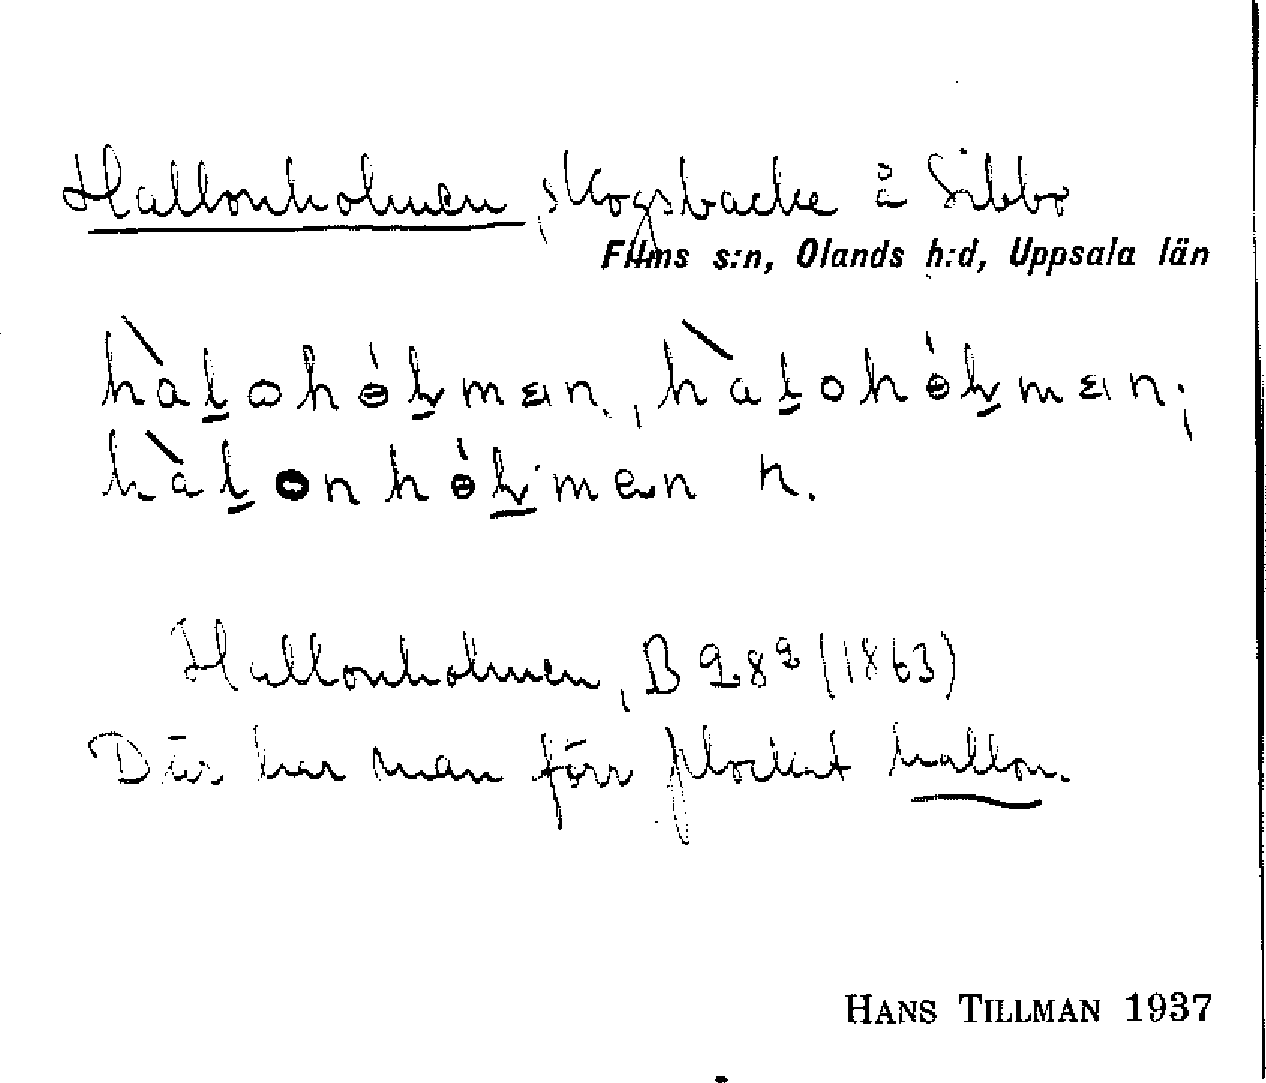 Hallonholmen, skogsbacke å Sibbo
Films s:n, Olands h:d, Uppsala län
hàl̲ohɵ́l̲mən, hàl̲ohɵ́l̲mən;
hàl̲onhɵ́l̲men n.
Hallonholmen, B Q 8² (1863)
Där har man förr plockat hallon.
HANS TILLMAN 1937